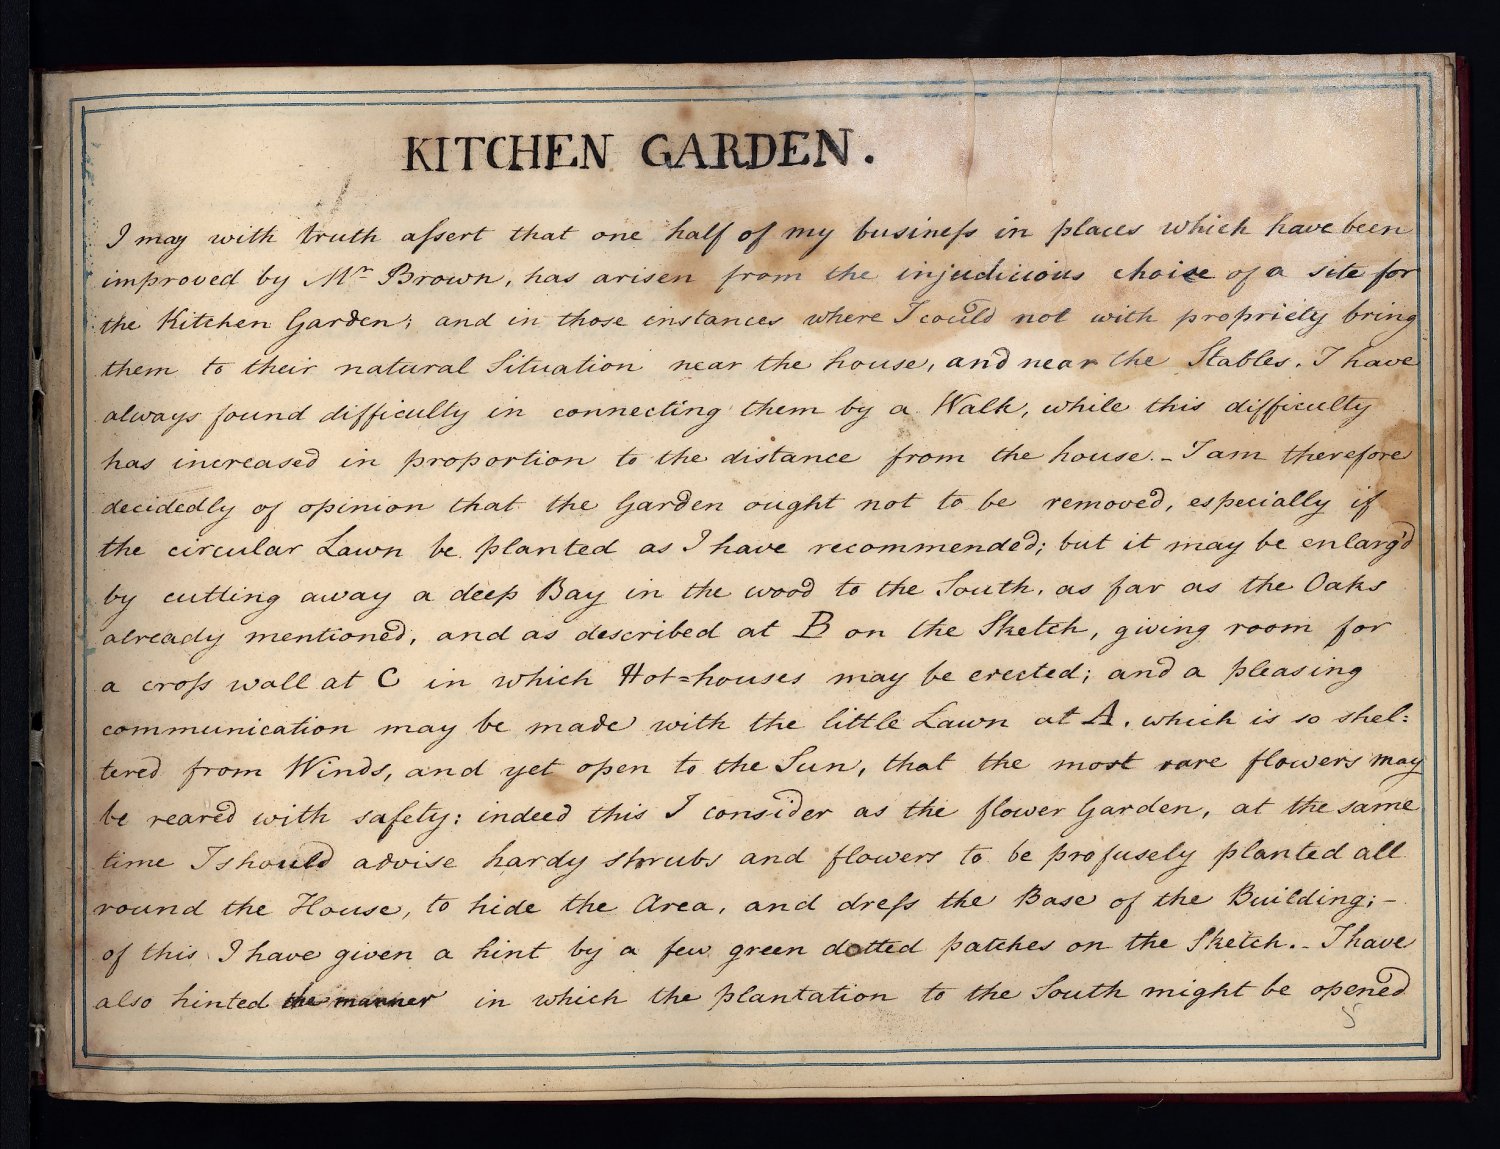 KITCHEN GARDEN.
I may with truth aſsert that one half of my busineſs in places which have been
improved by Mr Brown, has arisen from the injudicious choice of a site for
the Kitchen Garden; and in those instances where I could not with propriety bring
them to their natural Situation near the house, and near the Stables. I have
always found difficulty in connecting them by a Walk, while this difficulty
has increased in proportion to the distance from the house. - I am therefore
decidedly of opinion that the Garden ought not to be removed, especially if
the circular Lawn be planted as I have recommended; but it may be enlarg'd
by cutting away a deep Bay in the wood to the South, as far as the Oaks
already mentioned, and as described at B on the Sketch, giving room for
a croſs wall at C in which Hot=houses may be erected; and a pleasing
communication may be made with the little Lawn at A. which is so shel:
tered from Winds, and yet open to the Sun, that the most rare flowers may
be reared with safety: indeed this I consider as the flower Garden, at the same
time I should advise hardy shrubs and flowers to be profusely planted all
round the House, to hide the Area, and dreſs the Base of the Building; -
of this I have given a hint by a few green dotted patches on the Sketch. - I have
also hinted the manner in which the plantation to the South might be opened
5